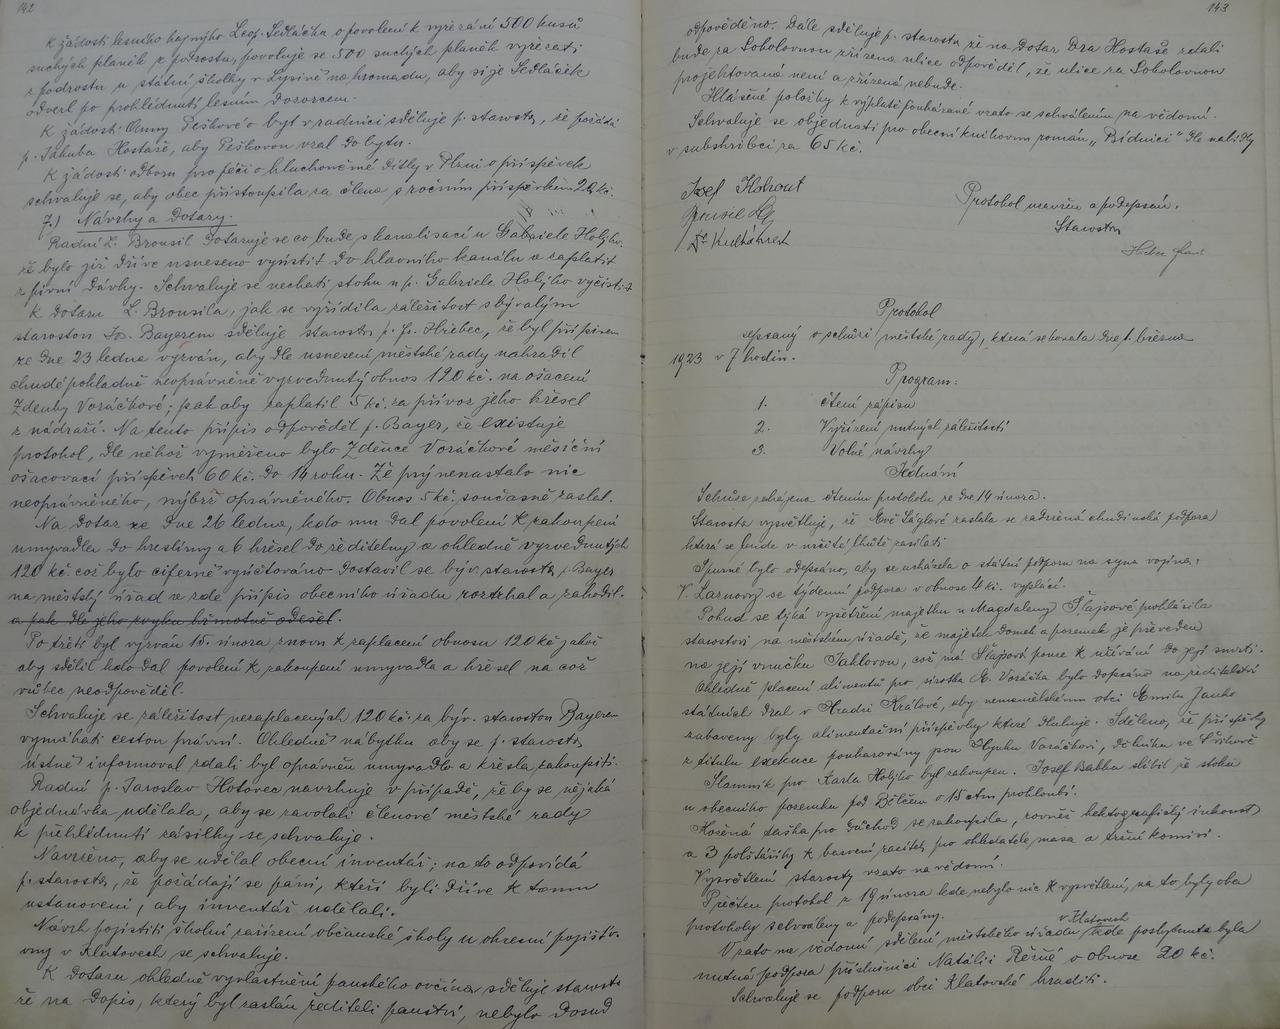 142
K žádosti lesního hajného Leop. Sedláčka o povolení k vyřezání 500 kusů
suchých planěk z podrostu, povoluje se 500 suchých planěk vyřezati
z podrostu u státní školky v Lysině na hromadu, aby si je Sedláček
odvezl po prohlédnutí lesním dozorcem.
K žádosti Anny Peškové o byt v radnici sděluje p. starosta, že požádá
p. Jakuba Hostaše, aby Peškovou vzal do bytu.
K žádosti odboru pro péči o hluchoněmé dítky v Plzni o příspěvek
schvaluje se, aby obec přistoupila za člena s ročním příspěvkem 20 kč.
7.) Návrhy a Dotazy.
Radní L. Brousil dotazuje se co bude s kanalisací u Gabriele Holého.
že bylo již dříve usneseno vyústit do hlavního kanálu a zaplatit
z pivní dávky. Schvaluje se nechati stoku u p. Gabriele Holýho vyčistit
K dotazu L. Brousila, jak se vyřídila záležitost s bývalým
starostou Jos. Bayerem sděluje starosta p. Fr. Hřebec, že byl přípisem
ze dne 23 ledna vyzván, aby dle usnesení městské rady nahradil
chudé pokladně neoprávněně vyzvednutý obnos 120 kč. na ošacení
Zdenky Voráčkové; pak aby zaplatil 5 kč. za přívoz jeho křesel
z nádraží. Na tento přípis odpověděl p. Bayer, že existuje
protokol, dle něhož vyměřeno bylo Zdence Voráčkové měsíční
ošacovací příspěvek 60 kč. do 14 roku. Že prý nenastalo nic
neoprávněného, nýbrž oprávněného. Obnos 5 kč. současně zaslal.
Na dotaz ze dne 26 ledna, kdo mu dal povolení k zakoupení
umyvadla do kreslírny a 6 křesel do ředitelny a ohledně vyzvednutých
120 kč. což bylo ciferně vyúčtováno dostavil se býv. starosta p. Bayer
na městský úřad a zde přípis obecního úřadu roztrhal a zahodil.
a pak dle jeho zvyku hřmotně odešel.
Po třetí byl vyzván 15. února znovu k zaplacení obnosu 120 kč jakož
aby sdělil kdo dal povolení k zakoupení umyvadla a křesel na což
vůbec neodpověděl.
Schvaluje se záležitost nezaplacených 120 kč. za býv. starostou Bayerem
vymáhati cestou právní. Ohledně nábytku aby se p. starosta
ústně informoval zdali byl oprávněn umyvadlo a křesla zakoupiti.
Radní p. Jaroslav Hotovec navrhuje v případě, že by se nějaká
objednávka udělala, aby se zavolali členové městské rady
k přehlédnutí zásilky se schvaluje.
Navrženo, aby se udělal obecní inventář; na to odpovídá
p. starosta, že požádají se páni, kteří byli dříve k tomu
ustanoveni, aby inventář udělali.
Návrh pojistiti školní zařízení občanské školy u okresní pojišťo-
vny v Klatovech se schvaluje.
K dotazu ohledně vyvlastnění panského ovčína sděluje starosta
že na dopis, který byl zaslán řediteli panství, nebylo dosud
143
odpověděno. Dále sděluje p. starosta že na dotaz Dra Hostaše zdali
bude za Sokolovnou zřízena ulice odpověděl, že ulice za Sokolovnou
projektovaná není a zřízená nebude.
Hlášené položky k výplatě poukázané vzato se schválením na vědomí.
Schvaluje se objednati pro obecní knihovnu román „Bídníci" dle nabídky
v subskribci za 65 kč.
Josef Kohout
Protokol uzavřen a podepsán.
Starosta
Protokol
sepsaný o schůzi městské rady, která se konala dne 1. března
1923 v 7 hodin.
Program:
1. čtení zápisu
2. Vyřízení nutných záležitostí
3. Volné návrhy
Jednání
Schůze zahájena čtením protokolu ze dne 14 února.
Starosta vysvětluje, že Evě Ságlové zaslala se zadržená chudinská podpora
která se bude v určité lhůtě zasílati
Spurné bylo odepsáno, aby se ucházela o státní podporu na syna vojína,
V. Larnový se týdenní podpora v obnose 4 kč. vyplácí.
Pokud se týká vyšetření majetku u Magdaleny Šlajsové prohlásila
starostovi na městském úřadě, že majetek domek a pozemek je převeden
na její vnučku Jahlovou, což má Šlajsová pouze k užívání do její smrti.
Ohledně placení alimentů pro sirotka A. Voráčka bylo dopsáno na ředitelství
státních drah v Hradci Králové, aby nemanželskému otci Emilu Janko
zabaveny byly alimentační příspěvky které dluhuje. Sděleno, že příspěvky
z titulu exekuce poukazovány jsou Hynku Voráčkovi, dělníku ve
Slamník pro Karla Holýho byl zakoupen. Josef Babka slíbil že stoku
u obecního pozemku pod Bělčem o 15 ctm prohloubí.
Kožená taška pro důchod se zakoupila, rovněž hektografický inkoust
a 3 polštářky k barvení razítek pro ohledatele masa a tržní komisi.
Vysvětlení starosty vzato na vědomí.
Přečten protokol z 19 února kde nebylo nic k vysvětlení, na to byly oba
protokoly schváleny a podepsány.
Vzato na vědomí sdělení městského úřadu v Klatovech kde poskytnuta byla
nutná podpora příslušnici Natálii Řežné o obnose 20 kč.
Schvaluje se podporu obci Klatovské hraditi.